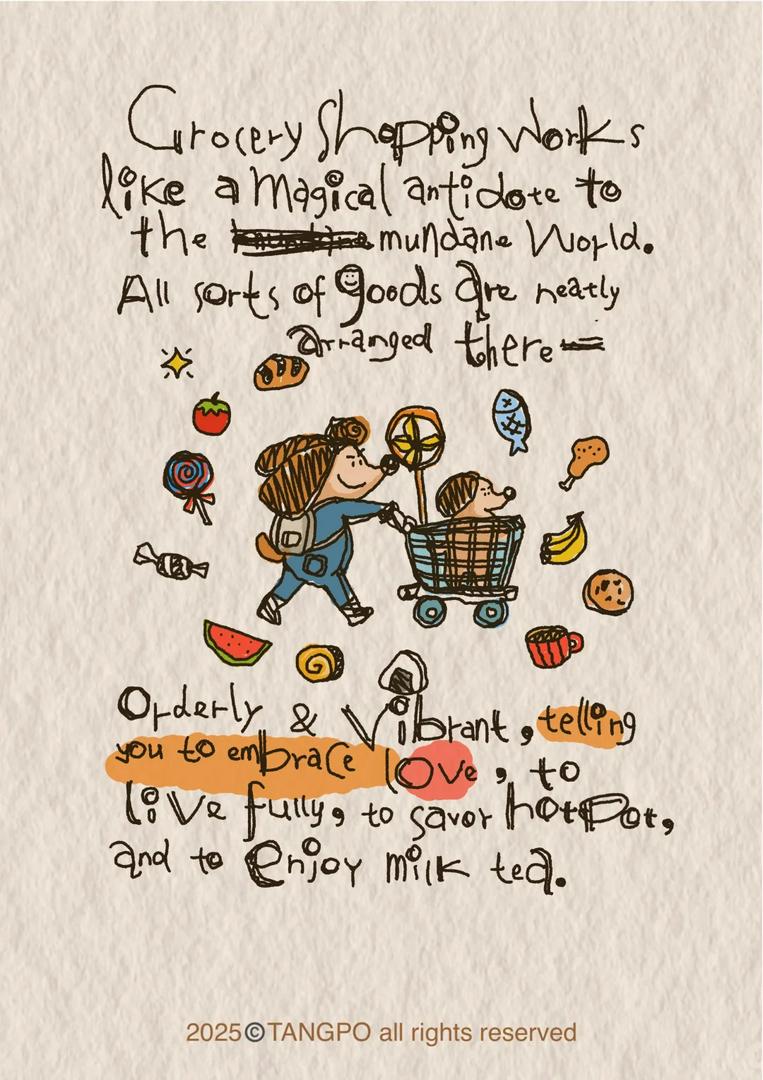 Grocery Shopping Works
like a Magical antidote to
the mundane World.
All sorts of goods are neatly
arranged there
Orderly & Vibrant, telling
you to embrace love, to
live fully, to savor hotpot,
and to enjoy milk tea.
2025©TANGPO all rights reserved